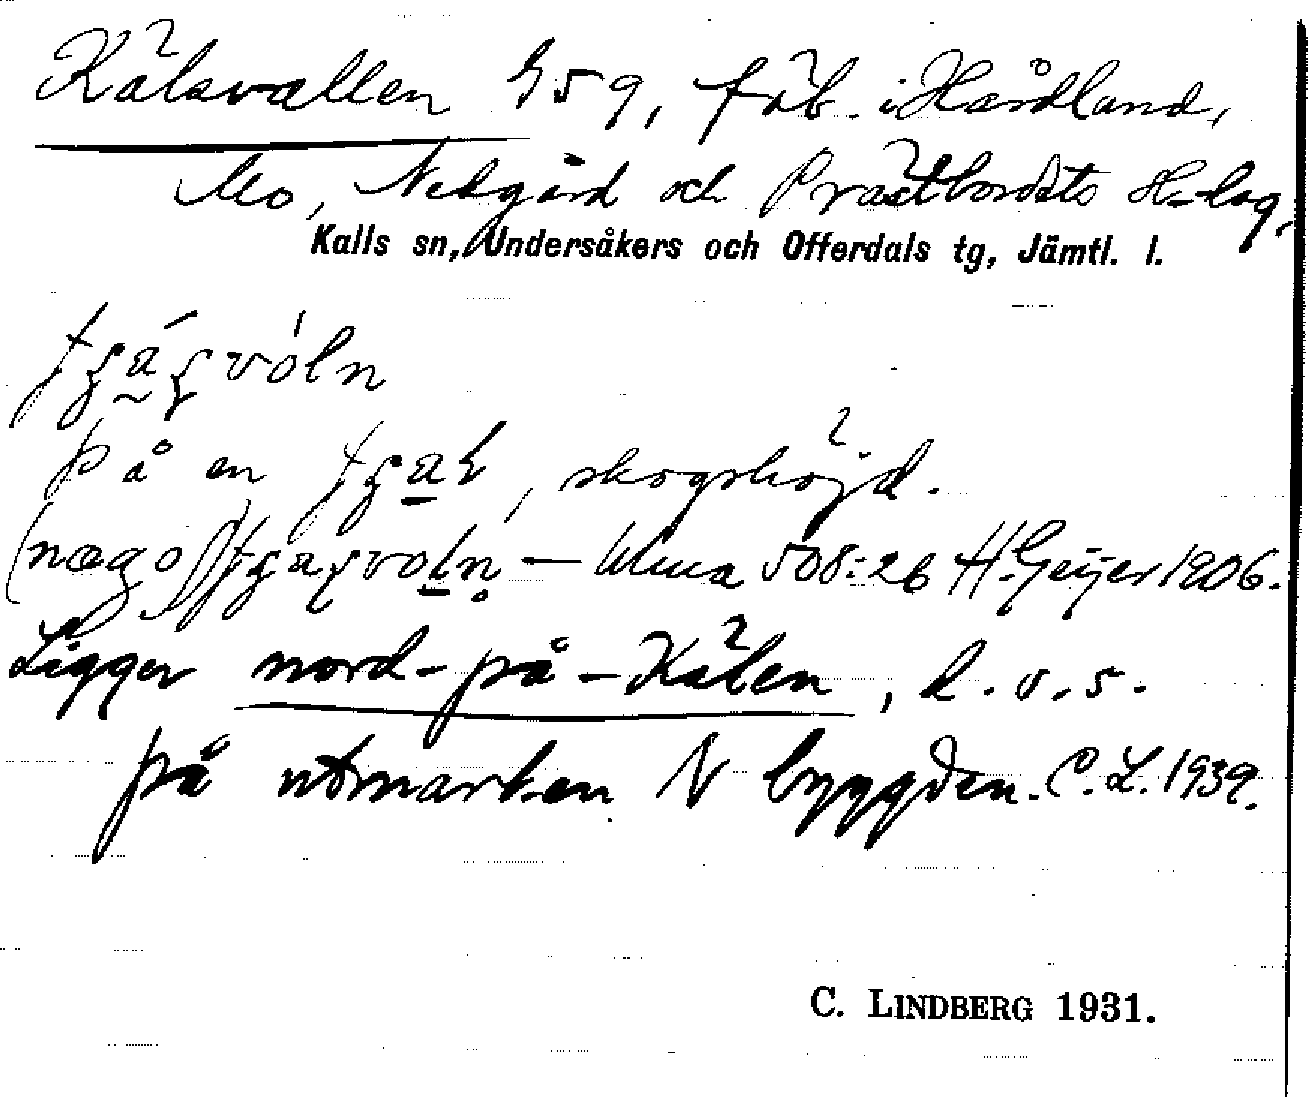 Kälsvallen G59, fäb. i Hårdland,
Mo, Nedgård och Prästbordets H-lag,
Kalls sn, Undersåkers och Offerdals tg, Jämtl. l.
på en skogshöjd.
— Ulma 508:26 H. Geijer 1906.
Ligger nord-på-Kälen, d.v.s.
på utmarken N byggden. C.L. 1939.
C. LINDBERG 1931.